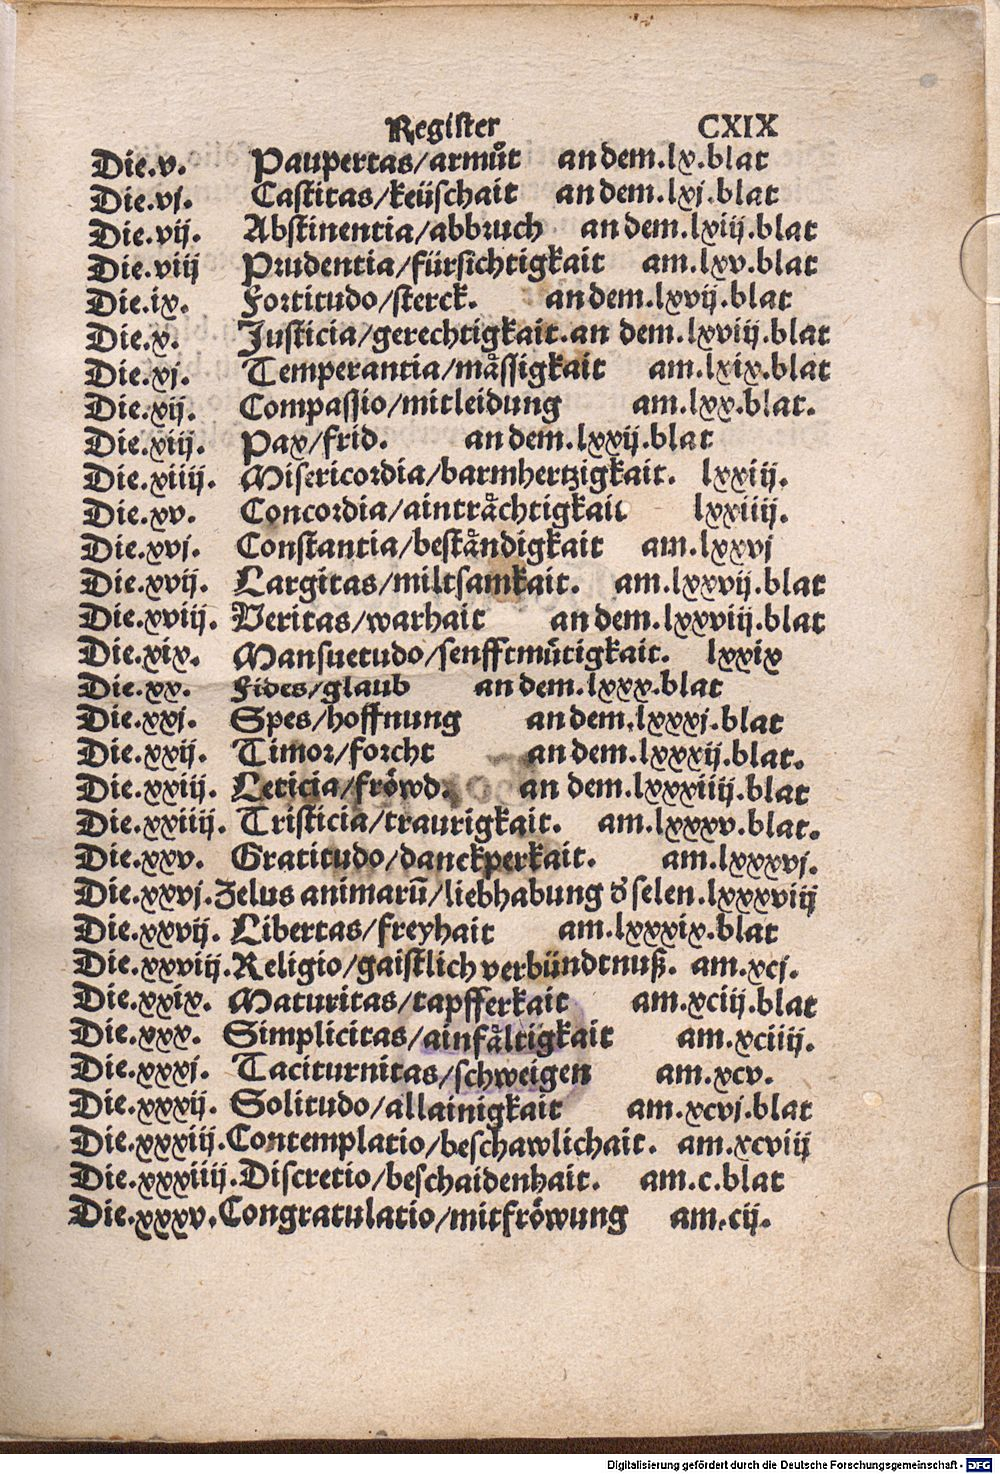 Register CXIX
Die.v. Paupertas/armůt an dem.lx.blat
Die.vj. Castitas/keüschait an dem.lxj.blat
Die.vij. Abstinentia/abbruch an dem.lxiij.blat
Die.viij Prudentia/fürsichtigkait am.lxv.blat
Die.ix. Fortitudo/sterck. an dem.lxvij.blat
Die.x. Justicia/gerechtigkait.an dem.lxviij.blat
Die.xj. Temperantia/måssigkait am.lxix.blat
Die.xij. Compassio/mitleidung am.lxx.blat.
Die.xiij. Pax/frid. an dem.lxxij.blat
Die.xiiij. Misericordia/barmhertzigkait. lxxiij.
Die.xv. Concordia/aintråchtigkait lxxiiij.
Die.xvj. Constantia/beståndigkait am.lxxvj
Die.xvij. Largitas/miltsamkait. am.lxxvij.blat
Die.xviij. Veritas/warhait an dem.lxxviij.blat
Die.xix. Mansuetudo/senfftmůtigkait. lxxix
Die.xx. Fides/glaub an dem.lxxx.blat
Die.xxj. Spes/hoffnung an dem.lxxxj.blat
Die.xxij. Timor/forcht an dem.lxxxij.blat.
Die.xxiij. Leticia/fröwd. an dem.lxxxiiij.blat
Die.xxiiij. Tristicia/traurigkait. am.lxxxv.blat.
Die.xxv. Gratitudo/danckperkait. am.lxxxvj.
Die.xxvj.Zelus animarū/liebhabung d̓ selen.lxxxviij
Die.xxvij. Libertas/freyhait am.lxxxix.blat
Die.xxviij.Religio/gaistlich verbündtnuß. am.xcj.
Die.xxix. Maturitas/tapfferkait am.xciij.blat
Die.xxx. Simplicitas/ainfåltigkait am.xciiij.
Die.xxxj. Taciturnitas/schweigen am.xcv.
Die.xxxij. Solitudo/allainigkait am.xcvj.blat
Die.xxxiij.Contemplatio/beschawlichait. am.xcviij
Die.xxxiiij.Discretio/beschaidenhait. am.c.blat
Die.xxxv.Congratulatio/mitfröwung am.cij.
Digitalisierung gefördert durch die Deutsche Forschungsgemeinschaft - DFG